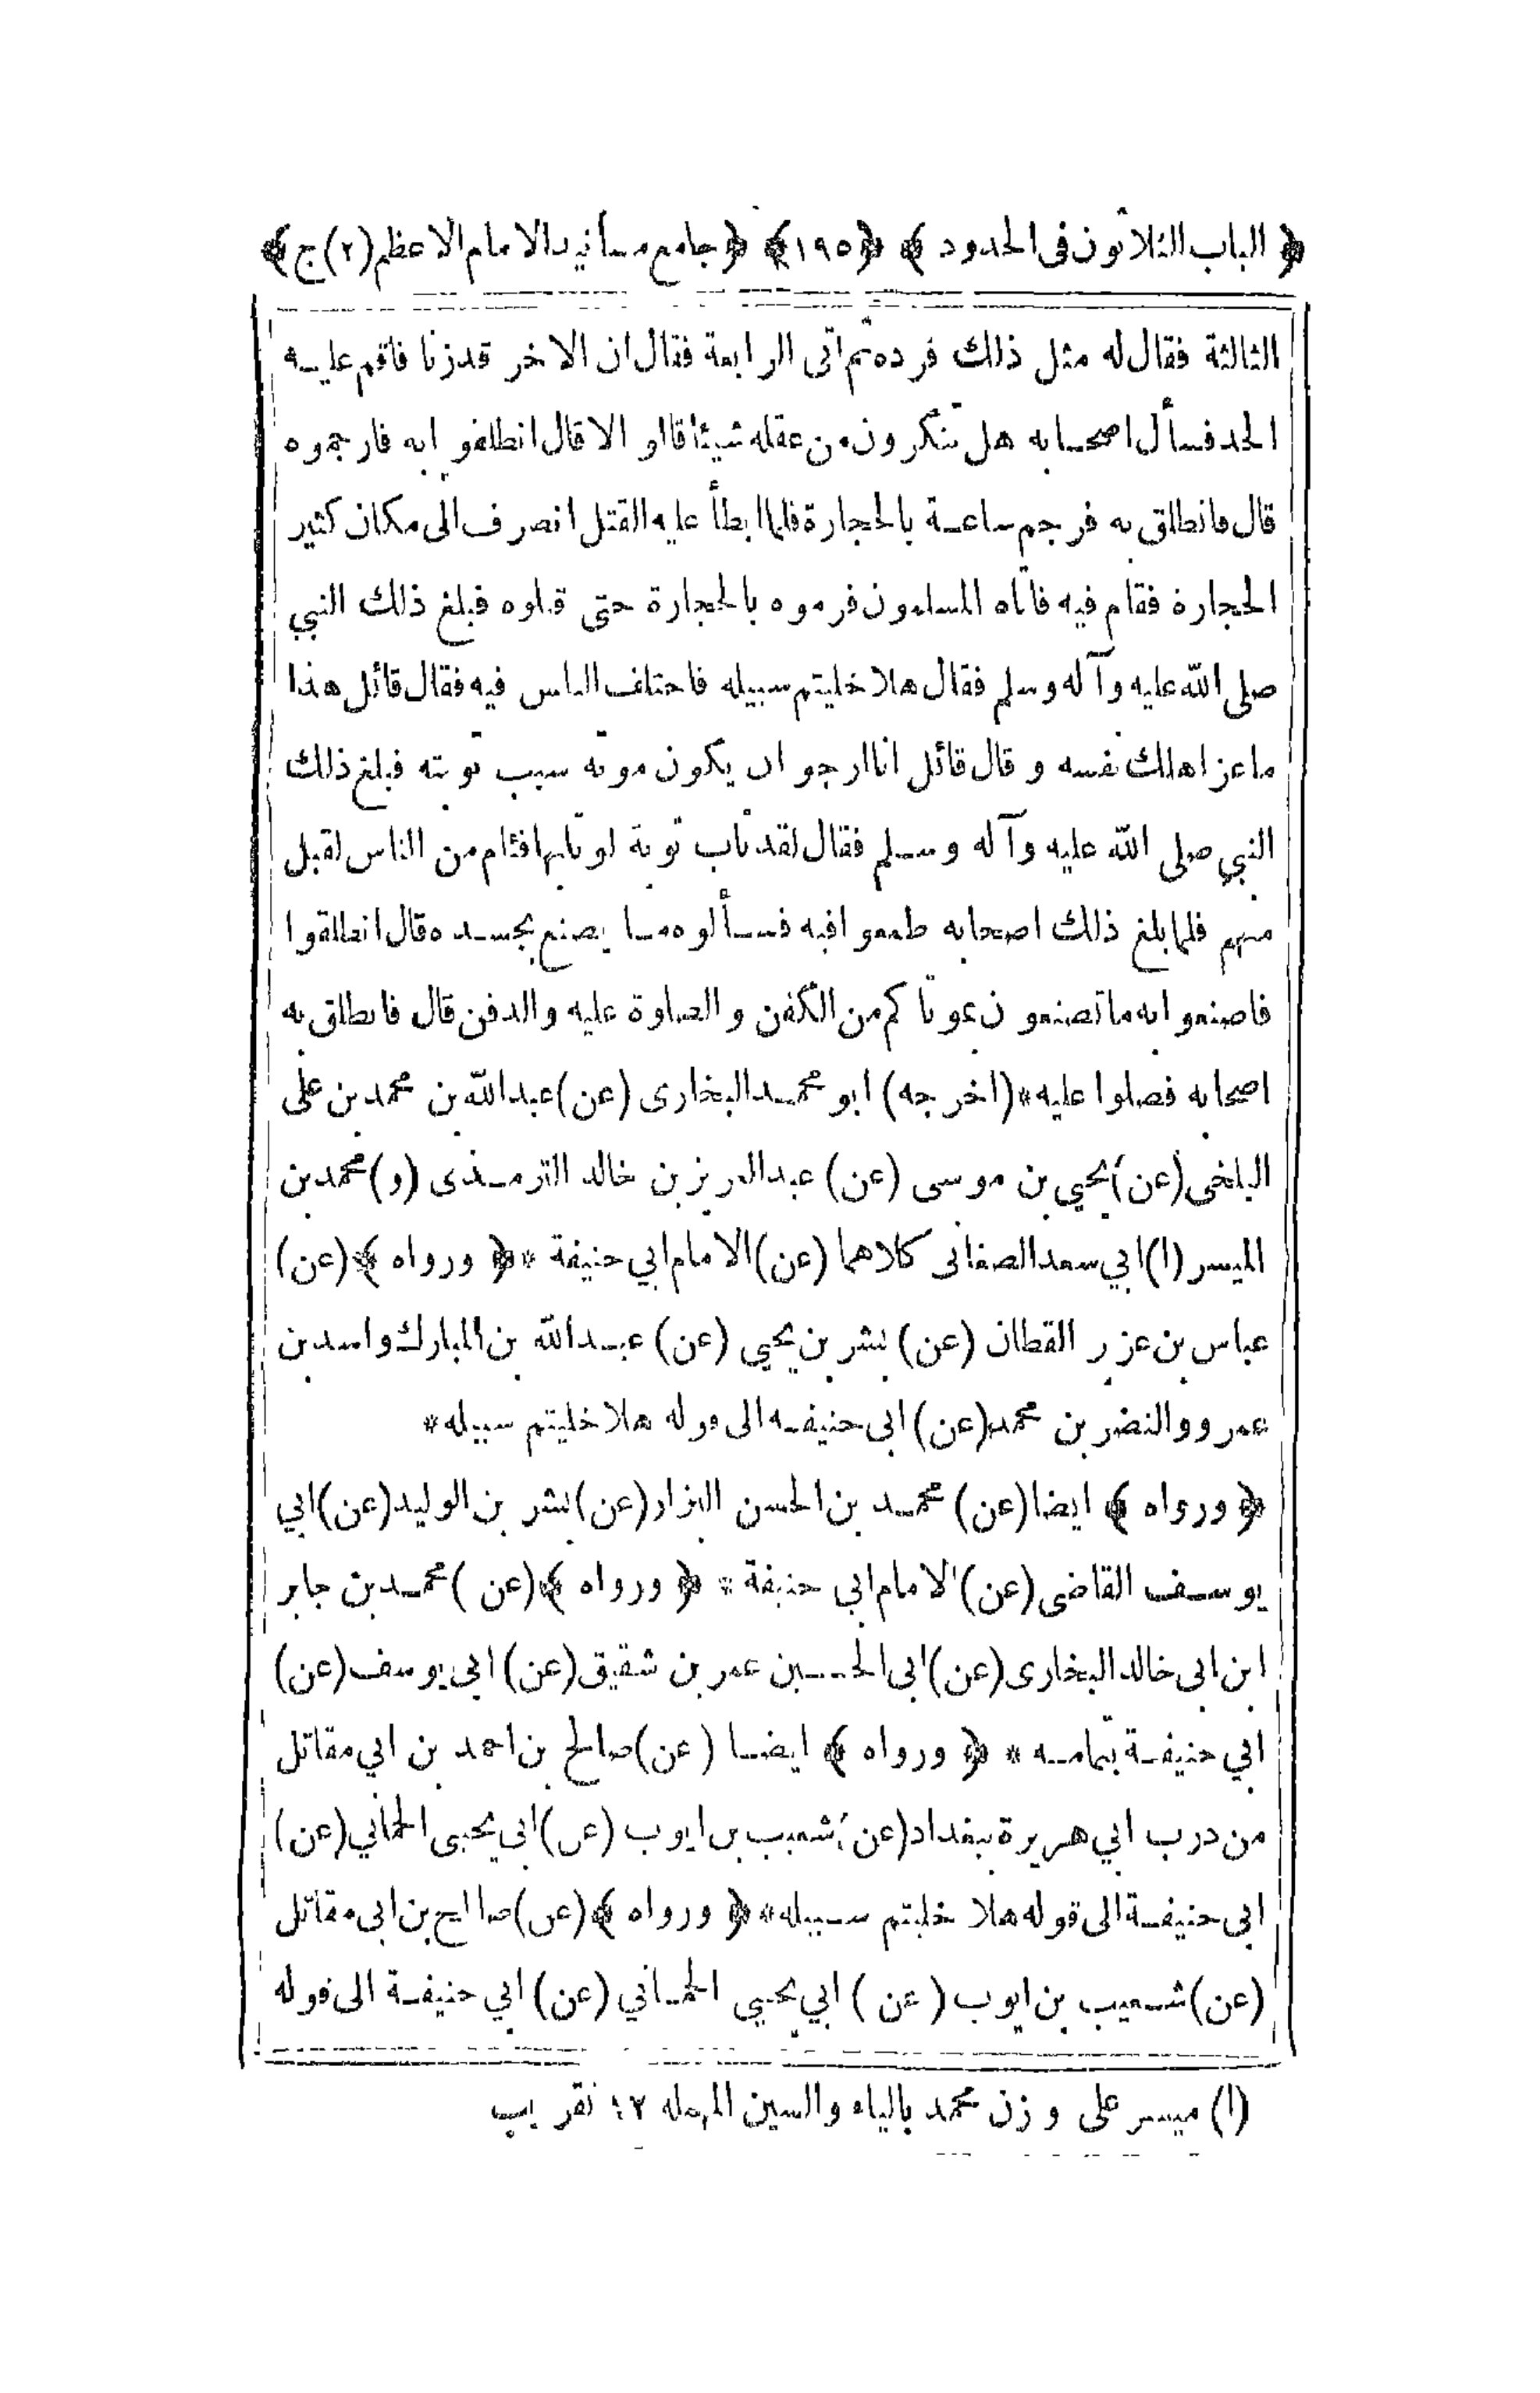 ﴿ الباب الثلاثون فى الحدود ﴾ ﴿١٩٥﴾ ﴿ جامع مسانيد الامام الاعظم (٢) ج﴾
الثالثة فقال له مثل ذلك فرده ثم اتى الرابعة فقال ان الاخر قد زنا فاقم عليه
الحد فسأل اصحابه هل تنكرون من عقله شيئا قالو الا قال انطلقو ابه فارجموه
قال فانطلق به فرجم ساعة بالحجارة فلما ابطأ عليه القتل انصرف الى مكان كثير
الحجارة فقام فيه فاتاه المسلمون فرموه بالحجارة حتى قتلوه فبلغ ذلك النبي
صلى الله عليه وآله وسلم فقال هلا خليتم سبيله فاختلف الناس فيه فقال قائل هذا
ماعز اهلك نفسه و قال قائل انا ارجو ان يكون موته سبب توبته فبلغ ذلك
النبي صلى الله عليه وآله وسلم فقال لقد تاب توبة لو تابها فئام من الناس لقبل
منهم فلما بلغ ذلك اصحابه طمعوا فيه فسألوه ما يصنع بجسده قال انطلقوا
فاصنعو ابه ما تصنعون بموتاكم من الكفن و الصلوة عليه والدفن قال فانطلق به
اصحابه فصلوا عليه * (اخرجه) ابو محمد البخارى (عن) عبدالله بن محمد بن على
البلخى (عن) يحيى بن موسى (عن) عبدالعزيز بن خالد الترمذى (و) محمد بن
الميسر (١) ابي سعد الصغانى كلاهما (عن) الامام ابي حنيفة * ﴿ ورواه ﴾ (عن)
عباس بن عزير القطان (عن) بشر بن يحيى (عن) عبدالله بن المبارك واسد بن
عمرو والنضر بن محمد (عن) ابى حنيفه الى قوله هلا خليتم سبيله *
﴿ ورواه ﴾ ايضا (عن) محمد بن الحسن البزار (عن) بشر بن الوليد (عن) ابي
يوسف القاضى (عن) الامام ابي حنيفة * ﴿ ورواه ﴾ (عن) محمد بن جابر
ابن ابى خالد البخارى (عن) ابى الحسين عمر بن شقيق (عن) ابي يوسف (عن)
ابي حنيفة بتمامه * ﴿ ورواه ﴾ ايضا (عن) صالح بن احمد بن ابي مقاتل
من درب ابي هريرة ببغداد (عن) شعيب بن ايوب (عن) ابى يحيى الحماني (عن)
ابى حنيفة الى قوله هلا خليتم سبيله * ﴿ ورواه ﴾ (عن) صالح بن ابى مقاتل
(عن) شعيب بن ايوب (عن) ابي يحيى الحماني (عن) ابي حنيفة الى قوله
(١) ميسر على وزن محمد بالياء والسين المهمله ١٢ تقريب